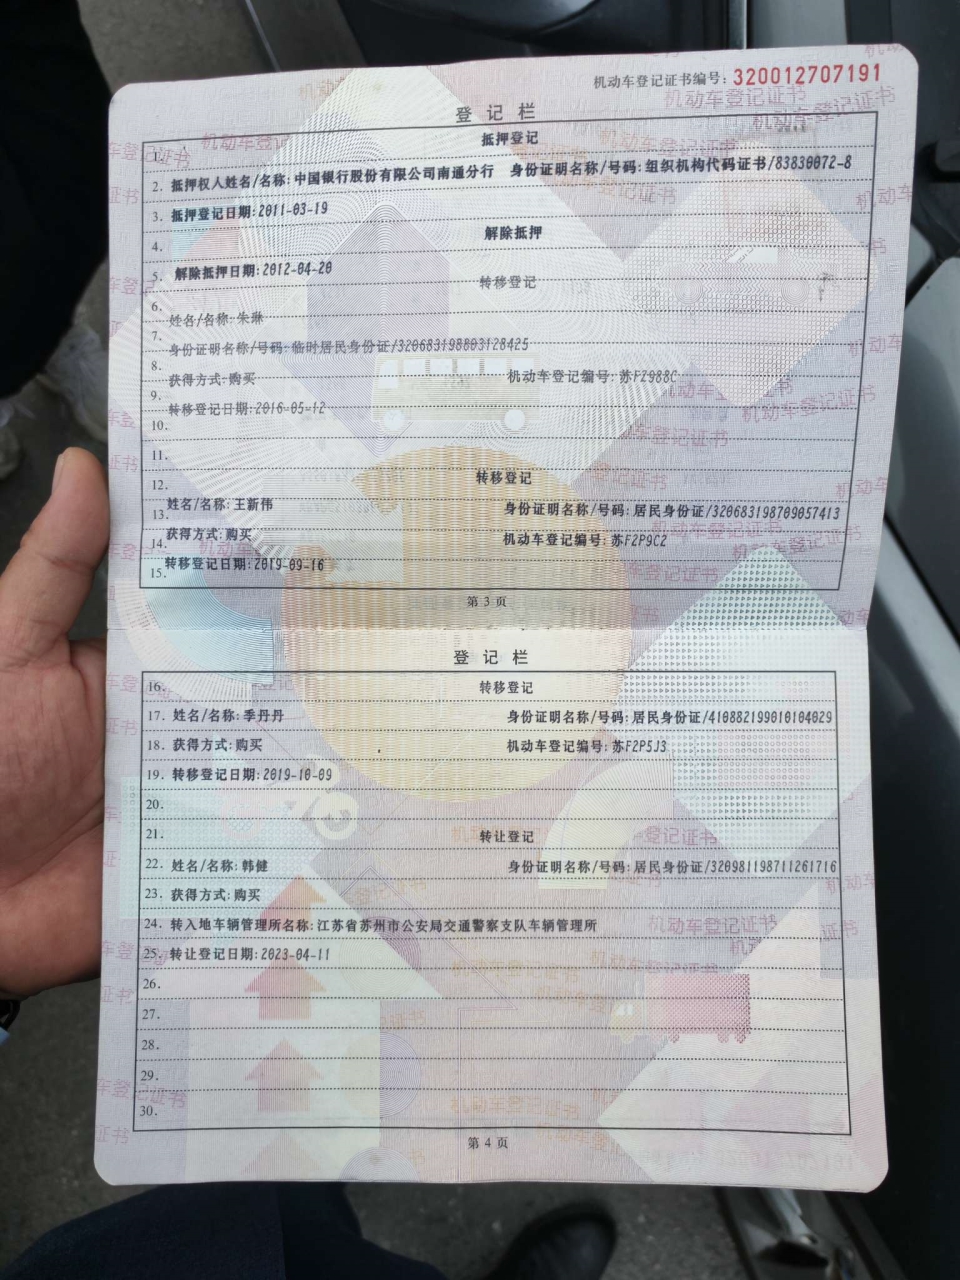 机动车登记证书编号: 320012707191
登记栏
1. 抵押登记
2. 抵押权人姓名/名称:中国银行股份有限公司南通分行 身份证明名称/号码:组织机构代码证书/83830072-8
3. 抵押登记日期:2011-03-19
4. 解除抵押
5. 解除抵押日期:2012-04-20
6. 转移登记
7. 姓名/名称:朱琳
8. 身份证明名称/号码:临时居民身份证/320683198803128425
9. 获得方式:购买 机动车登记编号:苏FZ988C
10. 转移登记日期:2016-05-12
11.
12. 转移登记
13. 姓名/名称:王新伟 身份证明名称/号码:居民身份证/320683198709057413
14. 获得方式:购买 机动车登记编号:苏F2P9C2
15. 转移登记日期:2019-09-16
第3页
登记栏
16. 转移登记
17. 姓名/名称:季丹丹 身份证明名称/号码:居民身份证/410882199010104029
18. 获得方式:购买 机动车登记编号:苏F2P5J3
19. 转移登记日期:2019-10-09
20.
21. 转让登记
22. 姓名/名称:韩健 身份证明名称/号码:居民身份证/320981198711261716
23. 获得方式:购买
24. 转入地车辆管理所名称:江苏省苏州市公安局交通警察支队车辆管理所
25. 转让登记日期:2023-04-11
26.
27.
28.
29.
30.
第4页